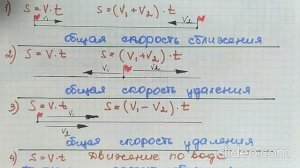 1) S = V · t S = (V₁ + V₂) · t
V₁ V₂
общая скорость сближения
2) S = V · t S = (V₁ + V₂) · t
V₁ V₂
общая скорость удаления
3) S = V · t S = (V₁ - V₂) · t
V₁
V₂
общая скорость удаления
4) S = V · t Движение по воде